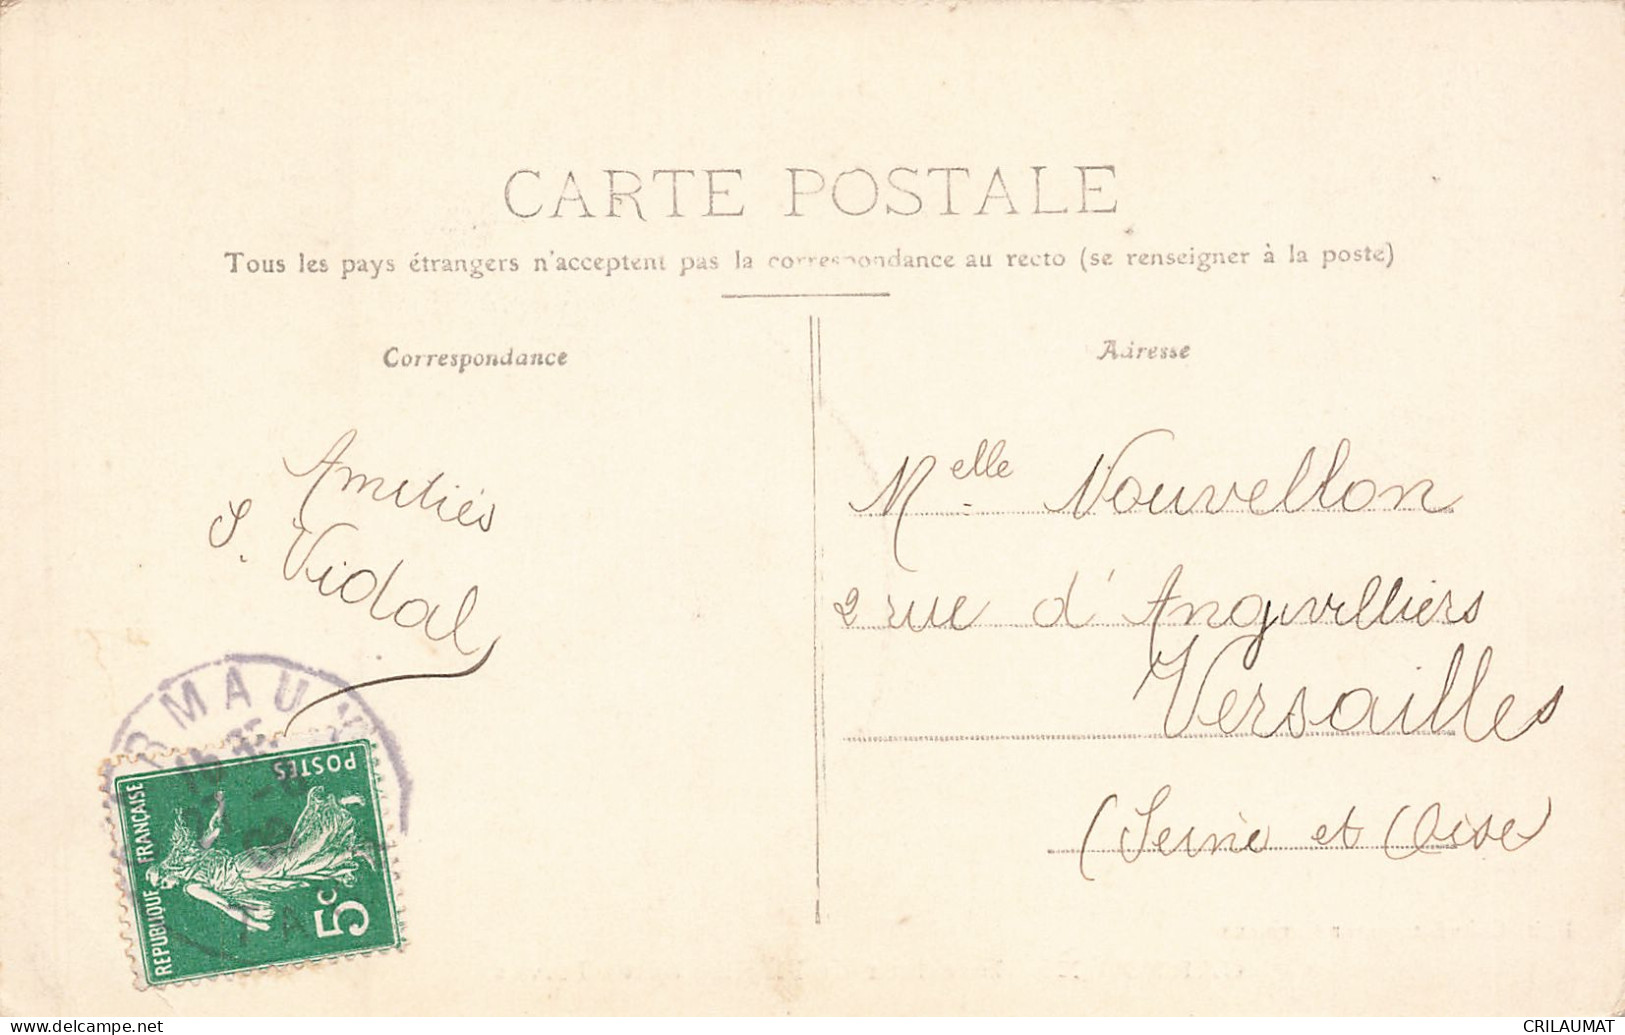 CARTE POSTALE
Tous les pays étrangers n'acceptent pas la correspondance au recto (se renseigner à la poste)
Correspondance
Amitiés
S. Vidal
Adresse
Melle Nouvellon
2 rue d'Angivilliers
Versailles
(Seine et Oise
RMAU
REPUBLIQUE FRANÇAISE
POSTES
5c
TA
CRILAUMAT
www.delcampe.net